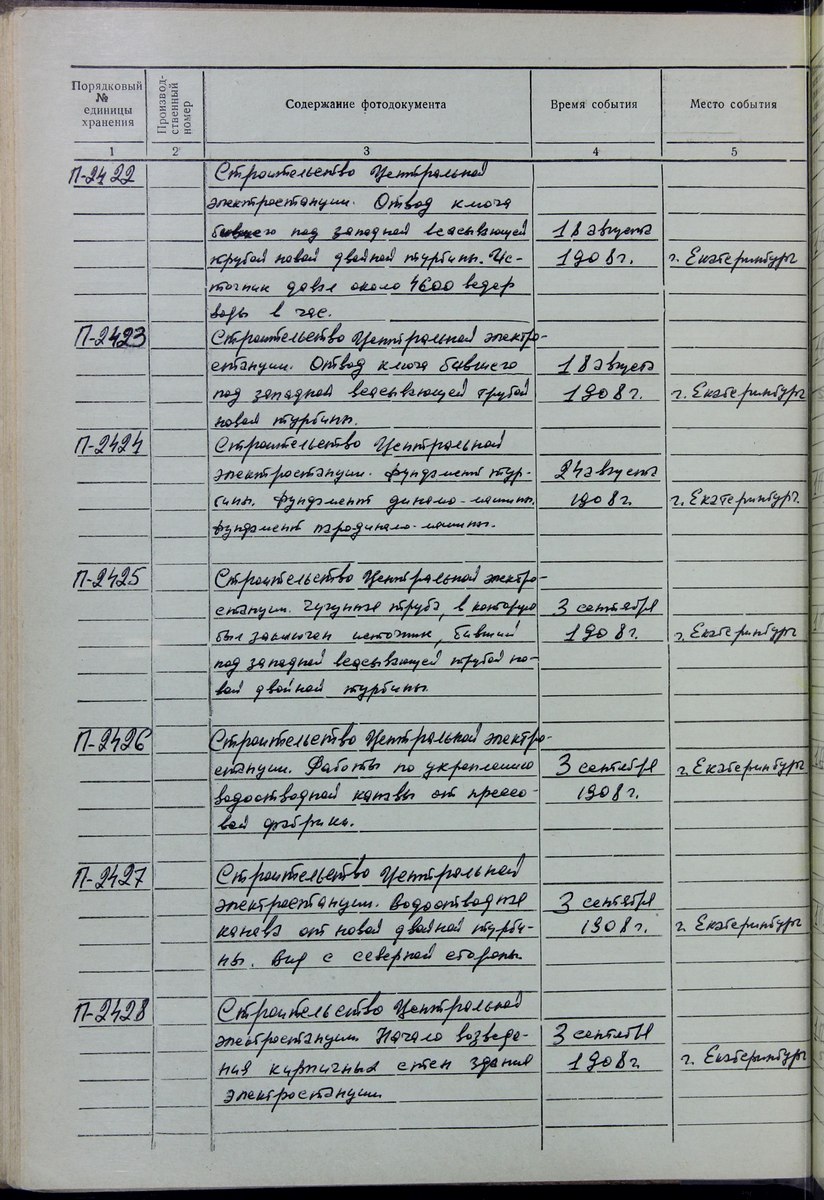 Порядковый № единицы хранения
Производ-ственный номер
Содержание фотодокумента
Время события
Место события
1 2 3 4 5
П-2422 Строительство Центральной
электростанции. Отвод ключа
бившего под западной всасывающей 18 августа
трубой новой двойной турбины. Ис- 1908 г. г. Екатеринбург
точник давал около 4600 ведер
воды в час.
П-2423 Строительство Центральной электро-
станции. Отвод ключа бившего 18 августа
под западной всасывающей трубой 1908 г. г. Екатеринбург
новой турбины.
П-2424 Строительство Центральной
электростанции. Фундамент тур- 24 августа
бины. Фундамент динамо-машины. 1908 г. г. Екатеринбург.
Фундамент пародинамо-машины.
П-2425 Строительство Центральной электро-
станции. Чугунная труба, в которую 3 сентября
был заключен источник, бивший 1908 г. г. Екатеринбург
под западной всасывающей трубой но-
вой двойной турбины.
П-2426 Строительство Центральной электро-
станции. Работы по укреплению 3 сентября г. Екатеринбург
водоотводной канавы от 1908 г.
вой фабрики.
П-2427 Строительство Центральной
электростанции. Водоотводная 3 сентября
канава от новой двойной турби- 1908 г. г. Екатеринбург
ны. Вид с северной стороны.
П-2428 Строительство Центральной
электростанции. Начало возведе- 3 сентября
ния кирпичных стен здания 1908 г. г. Екатеринбург
электростанции